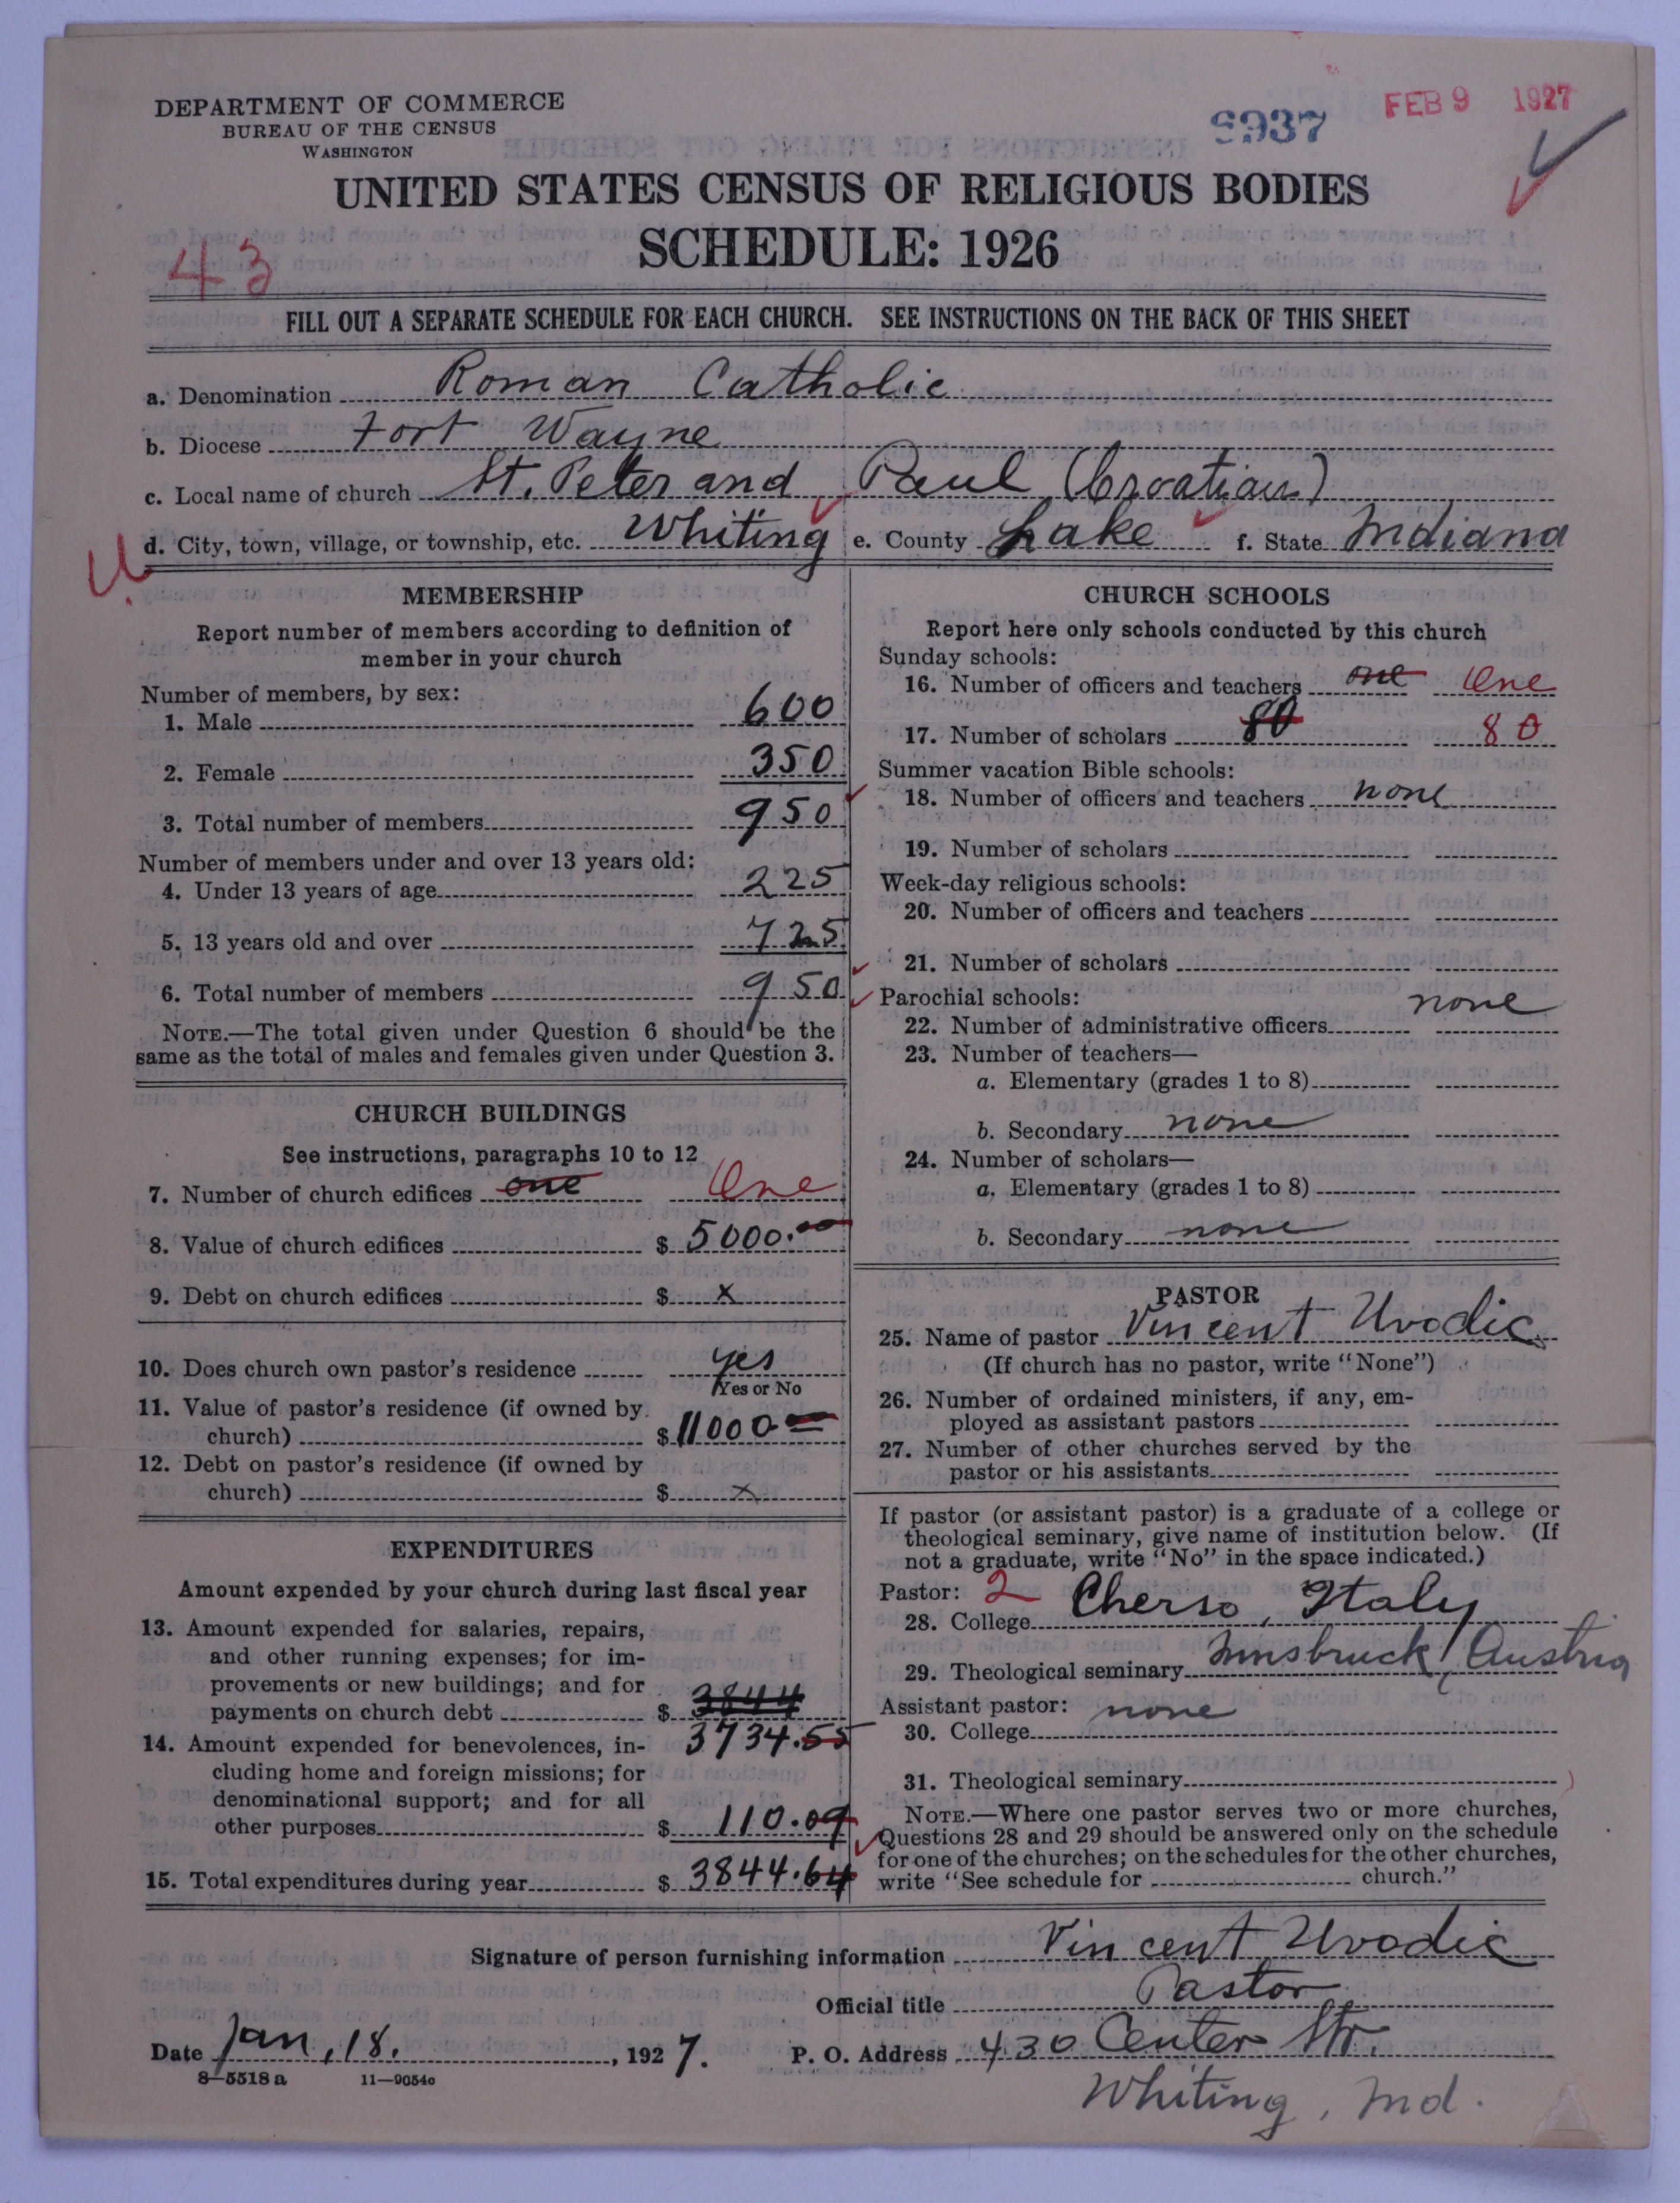 DEPARTMENT OF COMMERCE
BUREAU OF THE CENSUS
WASHINGTON
8937
FEB 9 1927
UNITED STATES CENSUS OF RELIGIOUS BODIES
SCHEDULE: 1926
43
FILL OUT A SEPARATE SCHEDULE FOR EACH CHURCH. SEE INSTRUCTIONS ON THE BACK OF THIS SHEET
a. Denomination Roman Catholic
b. Diocese Fort Wayne
c. Local name of church St. Peter and Paul (Croatian)
d. City, town, village, or township, etc. Whiting e. County Lake f. State Indiana
MEMBERSHIP
Report number of members according to definition of
member in your church
Number of members, by sex:
1. Male 600
2. Female 350
3. Total number of members 950
Number of members under and over 13 years old:
4. Under 13 years of age 225
5. 13 years old and over 725
6. Total number of members 950
NOTE.—The total given under Question 6 should be the
same as the total of males and females given under Question 3.
CHURCH BUILDINGS
See instructions, paragraphs 10 to 12
7. Number of church edifices one One
8. Value of church edifices $ 5000.00
9. Debt on church edifices $ x
10. Does church own pastor's residence yes
Yes or No
11. Value of pastor's residence (if owned by
church) $ 11000
12. Debt on pastor's residence (if owned by
church) $ x
EXPENDITURES
Amount expended by your church during last fiscal year
13. Amount expended for salaries, repairs,
and other running expenses; for im-
provements or new buildings; and for
payments on church debt $ 3844
3734.55
14. Amount expended for benevolences, in-
cluding home and foreign missions; for
denominational support; and for all
other purposes $ 110.09
15. Total expenditures during year $ 3844.64
CHURCH SCHOOLS
Report here only schools conducted by this church
Sunday schools:
16. Number of officers and teachers one One
17. Number of scholars 80 80
Summer vacation Bible schools:
18. Number of officers and teachers none
19. Number of scholars
Week-day religious schools:
20. Number of officers and teachers
21. Number of scholars
Parochial schools: none
22. Number of administrative officers
23. Number of teachers—
a. Elementary (grades 1 to 8)
b. Secondary none
24. Number of scholars—
a. Elementary (grades 1 to 8)
b. Secondary none
PASTOR
25. Name of pastor Vincent Uvodic
(If church has no pastor, write "None")
26. Number of ordained ministers, if any, em-
ployed as assistant pastors
27. Number of other churches served by the
pastor or his assistants
If pastor (or assistant pastor) is a graduate of a college or
theological seminary, give name of institution below. (If
not a graduate, write "No" in the space indicated.)
Pastor: 2
28. College Cherso, Italy
29. Theological seminary Innsbruck, Austria
Assistant pastor: none
30. College
31. Theological seminary
NOTE.—Where one pastor serves two or more churches,
Questions 28 and 29 should be answered only on the schedule
for one of the churches; on the schedules for the other churches,
write "See schedule for church."
Signature of person furnishing information Vincent Uvodic
Official title Pastor
Date Jan, 18, 1927. P. O. Address 430 Center Str.
8—5518 a 11—9054c
Whiting, Ind.